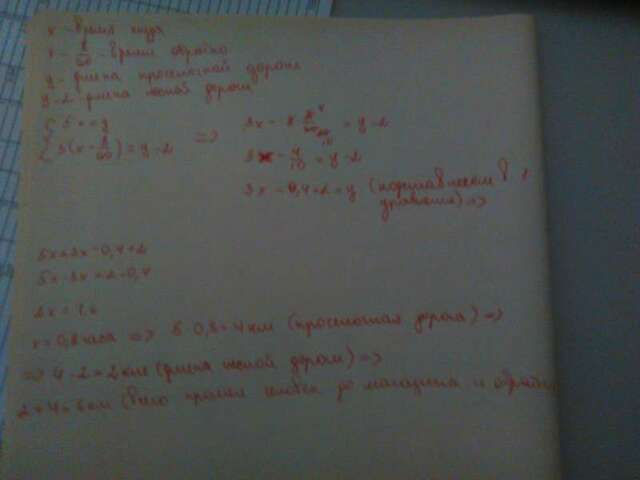 x - время туда
x - 8/60 - время обратно
y - длина проселочной дороги
y-2 - длина лесной дороги
{ 5x = y
{ 3(x - 8/60) = y-2 =>
3x - 3 · 8/60 = y-2
3x - 4/10 = y-2
3x - 0,4+2 = y (подставляем в 1
уравнение) =>
5x=3x-0,4+2
5x-3x=2-0,4
2x = 1,6
x = 0,8 часа => 5·0,8=4км (проселочная дорога) =>
=> 4-2=2км (длина лесной дороги) =>
2+4=6км (всего прошел человек до магазина и обратно)